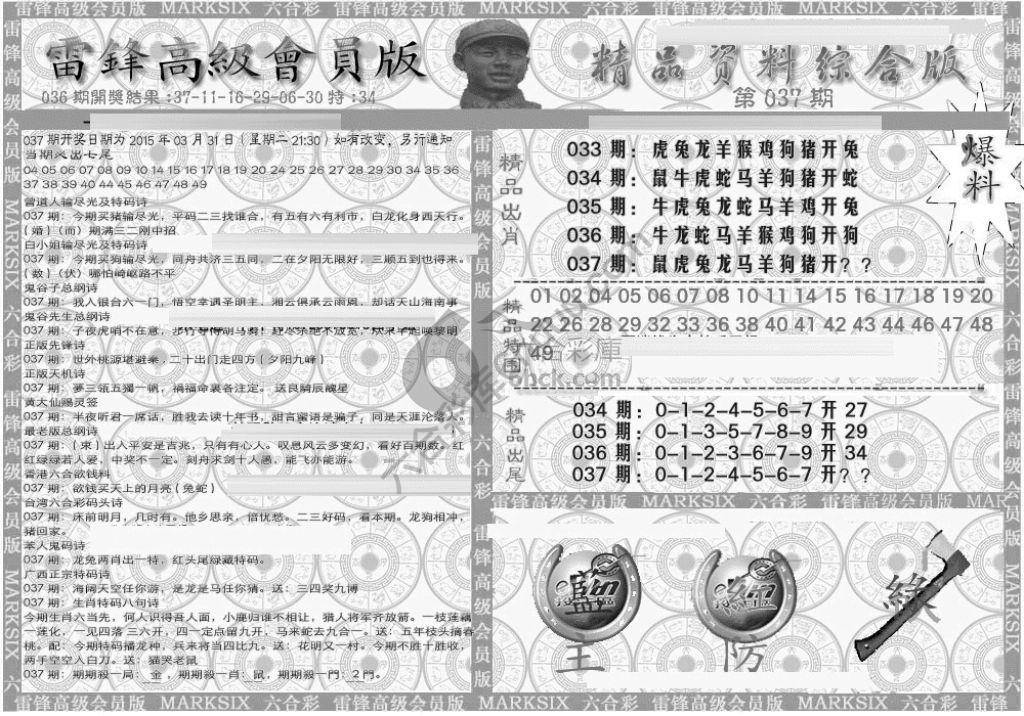 雷锋高级会员版 MARKSIX 六合彩 雷锋高级会员版 MARKSIX 六合彩 雷锋高级会员版 MARKSIX 六合彩 雷锋
雷鋒高級會員版
036期開獎結果:37-11-16-29-06-30特:34
精品资料综合版
第037期
爆料
037期开奖日期为2015年03月31日(星期二21:30)如有改变,另行通知
04 05 06 07 08 09 10 14 15 16 17 18 19 20 24 25 26 27 28 29 30 34 35 36
37 38 39 40 44 45 46 47 48 49
曾道人输尽光及特码诗
037期:今期买猪输尽光,平码二三找谁合,有五有六有利市,白龙化身西天行。
(婚)(而)期满三二刚中招
白小姐输尽光及特码诗
037期:今期买狗输尽光,同舟共济三五同,二在夕阳无限好,三顺五到也得来。
(数)(伏)哪怕崎岖路不平
鬼谷子总纲诗
037期:我入银台六一门,悟空幸遇圣明主,湘云俱承云雨恩,却话天山海南事
鬼谷先生总纲诗
037期:子夜虎哨不在意,
正版先锋诗
037期:世外桃源堪避秦,二十出门走四方(夕阳九峰)
正版天机诗
037期:梦三领五獨一帆,祸福命裏各注定。送良騎辰醜星
黄大仙赐灵签
037期:半夜听君一席话,胜我去读十年书,甜言蜜语是骗子,同是天涯沦落人。
最老版总纲诗
037期:(束)出入平安是吉兆,只有有心人。叹息风云多变幻,看好百期数。红
红绿绿若人爱,中奖不一定。刻舟求剑十人愚,能飞亦能游。
香港六合欲钱料
037期:欲钱买天上的月亮(兔蛇)
台湾六合彩码头诗
037期:床前明月,几时有。他乡思亲,倍忧愁。二三好码,看本期。龙狗相冲,
猪回家。
苯人鬼码诗
037期:龙兔两肖出一特,红头尾绿藏特码。
广西正宗特码诗
037期:海阔天空任你游,是龙是马任你猜。送:三四奖九博
037期:生肖特码八句诗
今期生肖六当先,何人识得吾人面,小鹿归谁不相让,猎人将军齐放箭。一枝莲藕
一莲化,一见四落三六开,四一定点留九开,马来蛇去九合一。送:五年枝头摘春
桃。配:今期特码播龙种,兵来将当四比九。送:花明又一村。今期不胜十胜收,
两手空空入白刀。送:猫哭老鼠
037期:期期殺一局:金,期期殺一肖:鼠,期期殺一門:2門。
精品出肖
033期:虎兔龙羊猴鸡狗猪开兔
034期:鼠牛虎蛇马羊狗猪开蛇
035期:牛虎兔龙蛇马羊鸡开兔
036期:牛龙蛇马羊猴鸡狗开狗
037期:鼠虎兔龙马羊狗猪开??
精品特围
01 02 04 05 06 07 08 10 11 14 15 16 17 18 19 20
22 26 28 29 32 33 36 38 40 41 42 43 44 46 47 48
49
精品出尾
034期:0-1-2-4-5-6-7开27
035期:0-1-2-5-7-8-9开29
036期:0-1-2-3-6-7-9开34
037期:0-1-2-4-5-6-7开??
雷锋高级会员版 MARKSIX 六合彩 雷锋高级会员版
主
防
緣
雷锋高级会员版 MARKSIX 六合彩 雷锋高级会员版 MARKSIX 六合彩 雷锋高级会员版 MARKSIX 六合彩 雷锋